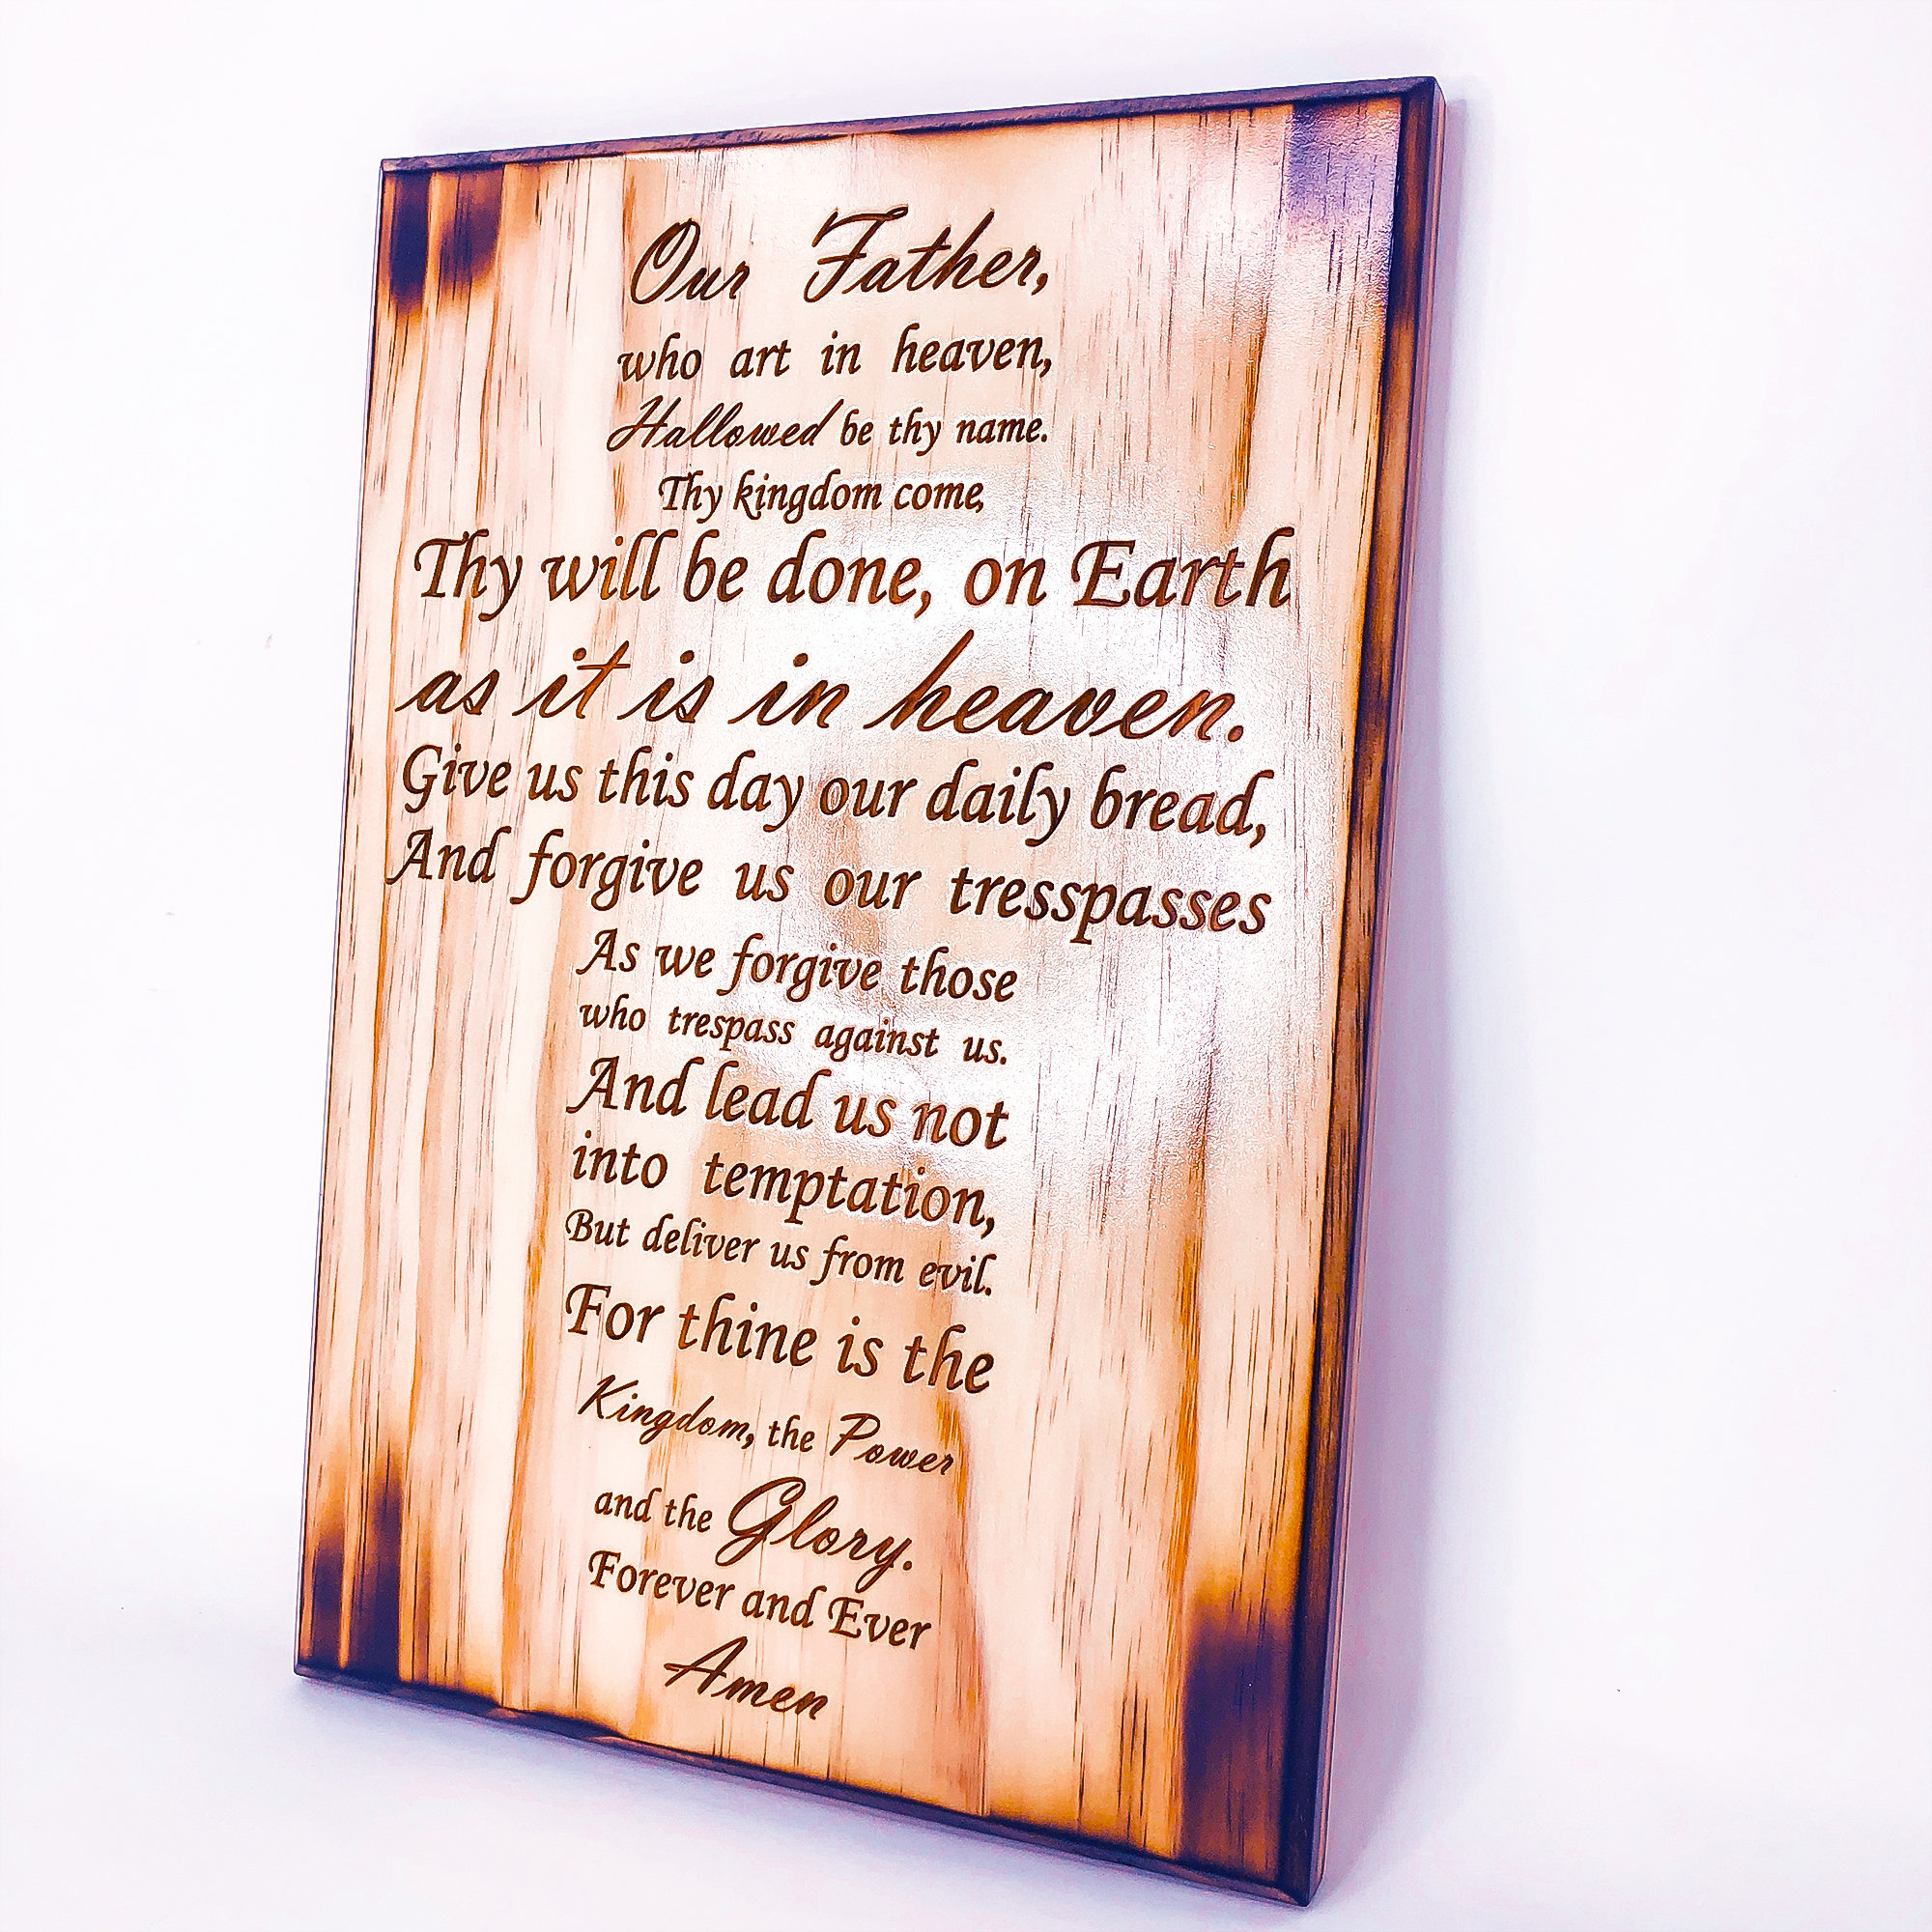 Our Father,
who art in heaven,
Hallowed be thy name.
Thy kingdom come,
Thy will be done, on Earth
as it is in heaven.
Give us this day our daily bread,
And forgive us our tresspasses
As we forgive those
who trespass against us.
And lead us not
into temptation,
But deliver us from evil.
For thine is the
Kingdom, the Power
and the Glory.
Forever and Ever
Amen